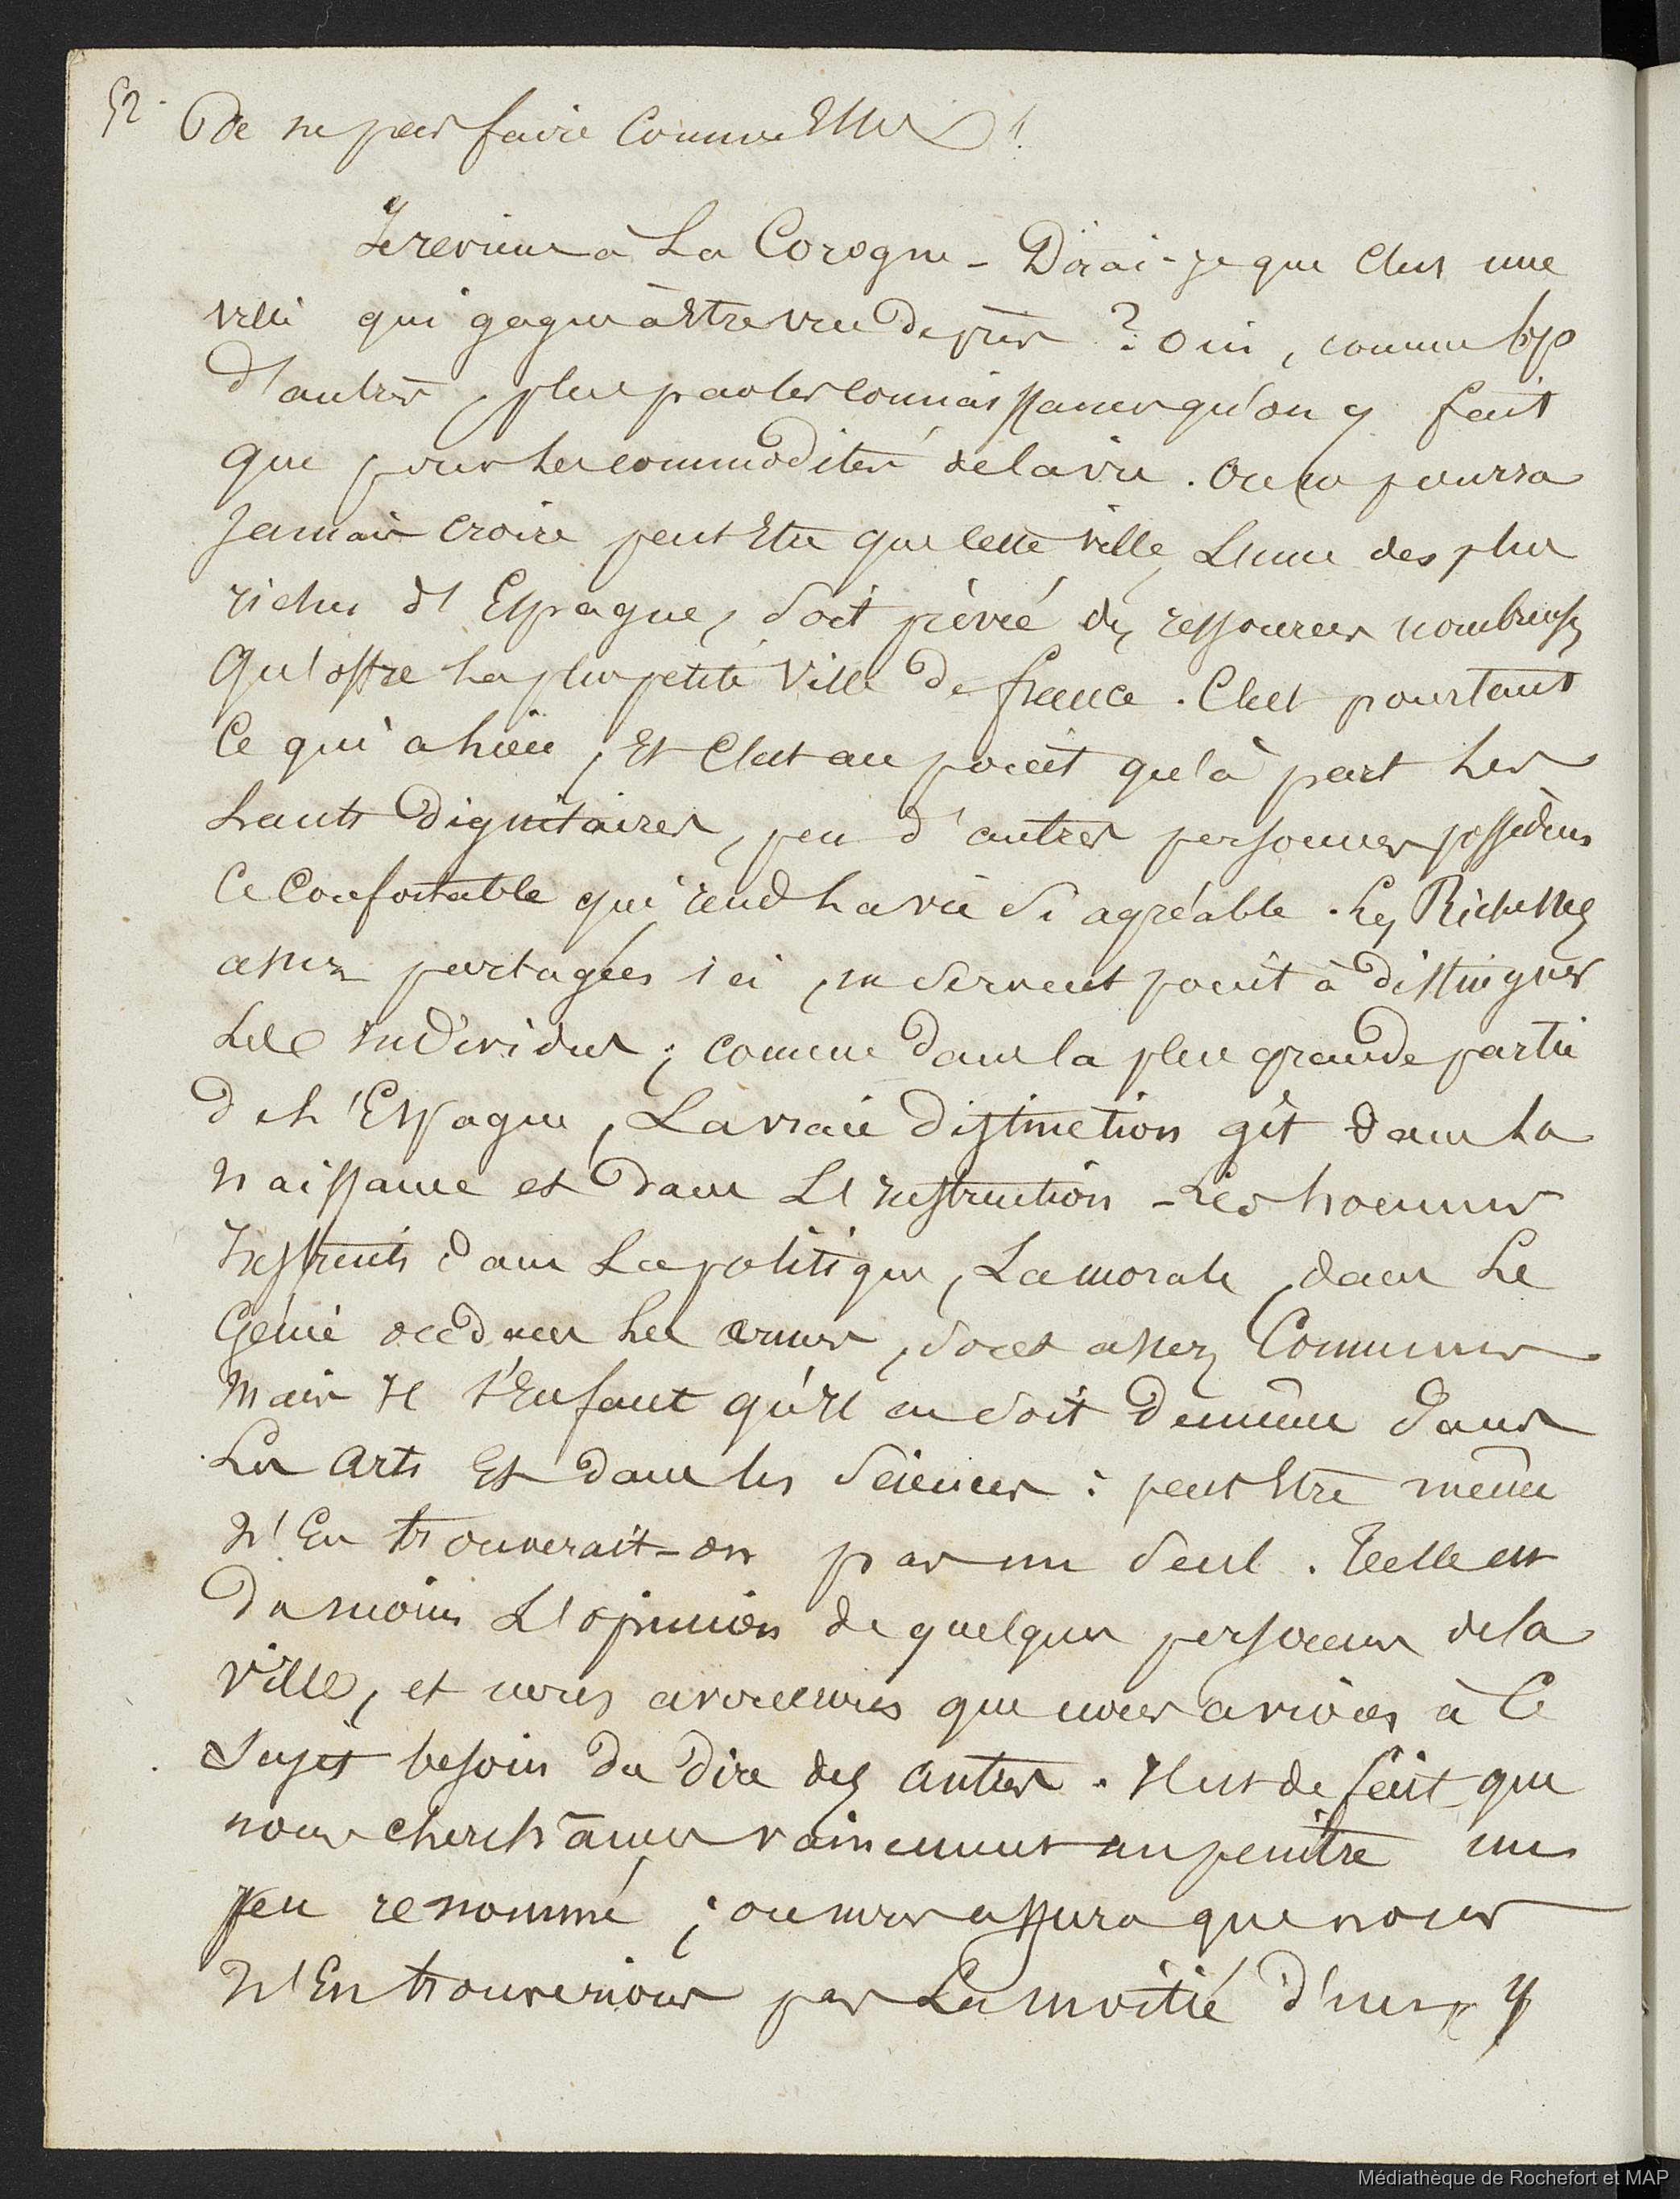 52.
De ne pas faire comme Eux !
Je reviens à La Corogne - Dirai-je que C'est une
ville qui gagne à Etre vue de près ? Oui, comme bp
d'autres, plus par les connaissances qu'on y fait
que pour les commodités de la vie. On ne pourra
Jamais croire peut Etre que cette ville, L'une des plus
riches d'Espagne, soit privée des ressources nombreuses
Qu'offre la plus petite Ville de france. C'est pourtant
Ce qui a lieu, Et C'est au point qu'à part les
hauts Dignitaires, peu d'autres personnes possèdent
Ce Confortable qui rend la vie si agréable. Les Richesses
assez partagées ici, ne servent point à distinguer
Les individus ; comme dans la plus grande partie
de l'Espagne, La vraie distinction gît dans la
naissance et dans L'instruction - Les hommes
Instruits dans La politique, La morale, dans Le
Génie ou dans les armes, sont assez Communs
Mais Il s'En faut qu'Il en soit de même dans
Les Arts Et dans les Sciences : peut Etre même
N'En trouverait-on pas un seul. Telle est
du moins L'opinion de quelques personnes de la
ville, et nous avouerons que nous avions à Ce
Sujet besoin du dire des autres. Il est de fait que
nous cherchâmes vainement un peintre un
peu renommé ; on nous assura que nous
N'En trouverions pas La moitié d'un. Y
Médiathèque de Rochefort et MAP